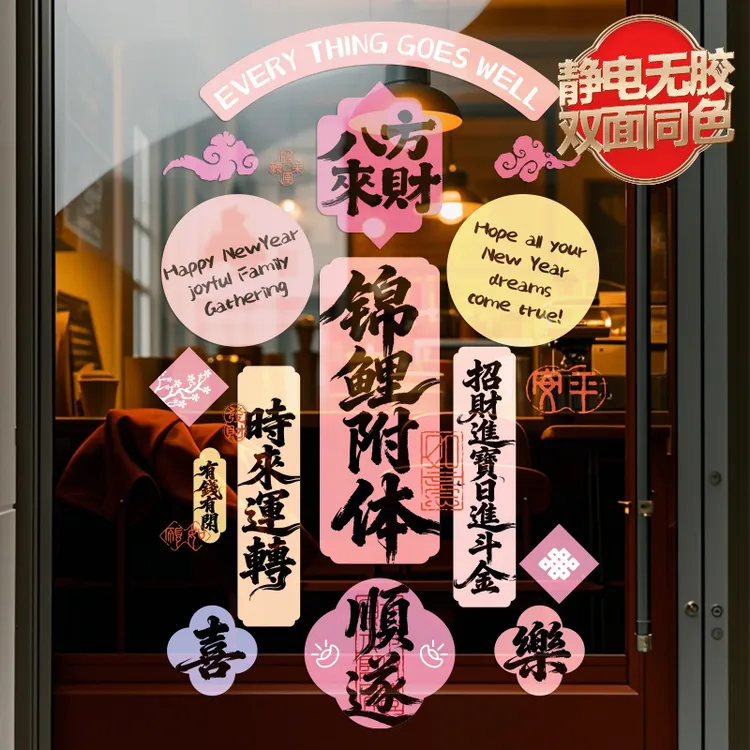 EVERY THING GOES WELL
静电无胶
双面同色
八方
來財
Happy NewYear
joyful Family
Gathering
Hope all your
New Year
dreams
come true!
锦鲤附体
招財進寶日進斗金
時來運轉
有錢有閒
發財
喜
順遂
樂